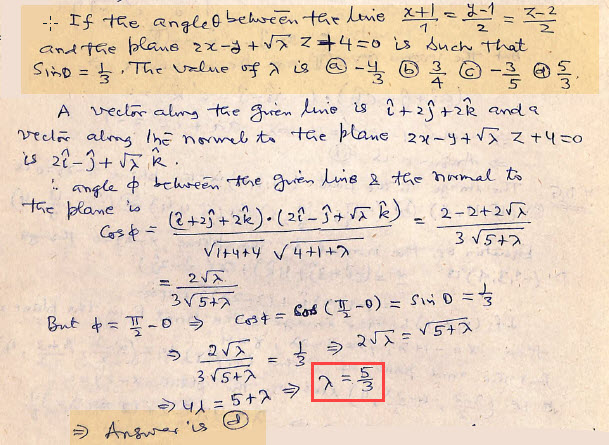 ∴ If the angle θ between the line (x+1)/1 = (y-1)/2 = (z-2)/2
and the plane 2x-y+√λ z+4=0 is such that
Sinθ = 1/3. The value of λ is ⓐ -4/3 ⓑ 3/4 ⓒ -3/5 ⓓ 5/3.
A vector along the given line is î+2ĵ+2k̂ and a
vector along the normal to the plane 2x-y+√λ z+4=0
is 2î-ĵ+√λ k̂.
∴ angle φ between the given line & the normal to
the plane is
Cosφ = (î+2ĵ+2k̂)·(2î-ĵ+√λ k̂) / (√(1+4+4) √(4+1+λ)) = (2-2+2√λ) / (3√(5+λ))
= 2√λ / (3√(5+λ))
But φ = π/2 - θ ⇒ Cosφ = Cos(π/2 - θ) = Sinθ = 1/3
⇒ 2√λ / (3√(5+λ)) = 1/3 ⇒ 2√λ = √(5+λ)
⇒ 4λ = 5+λ ⇒ λ = 5/3
⇒ Answer is ⓓ